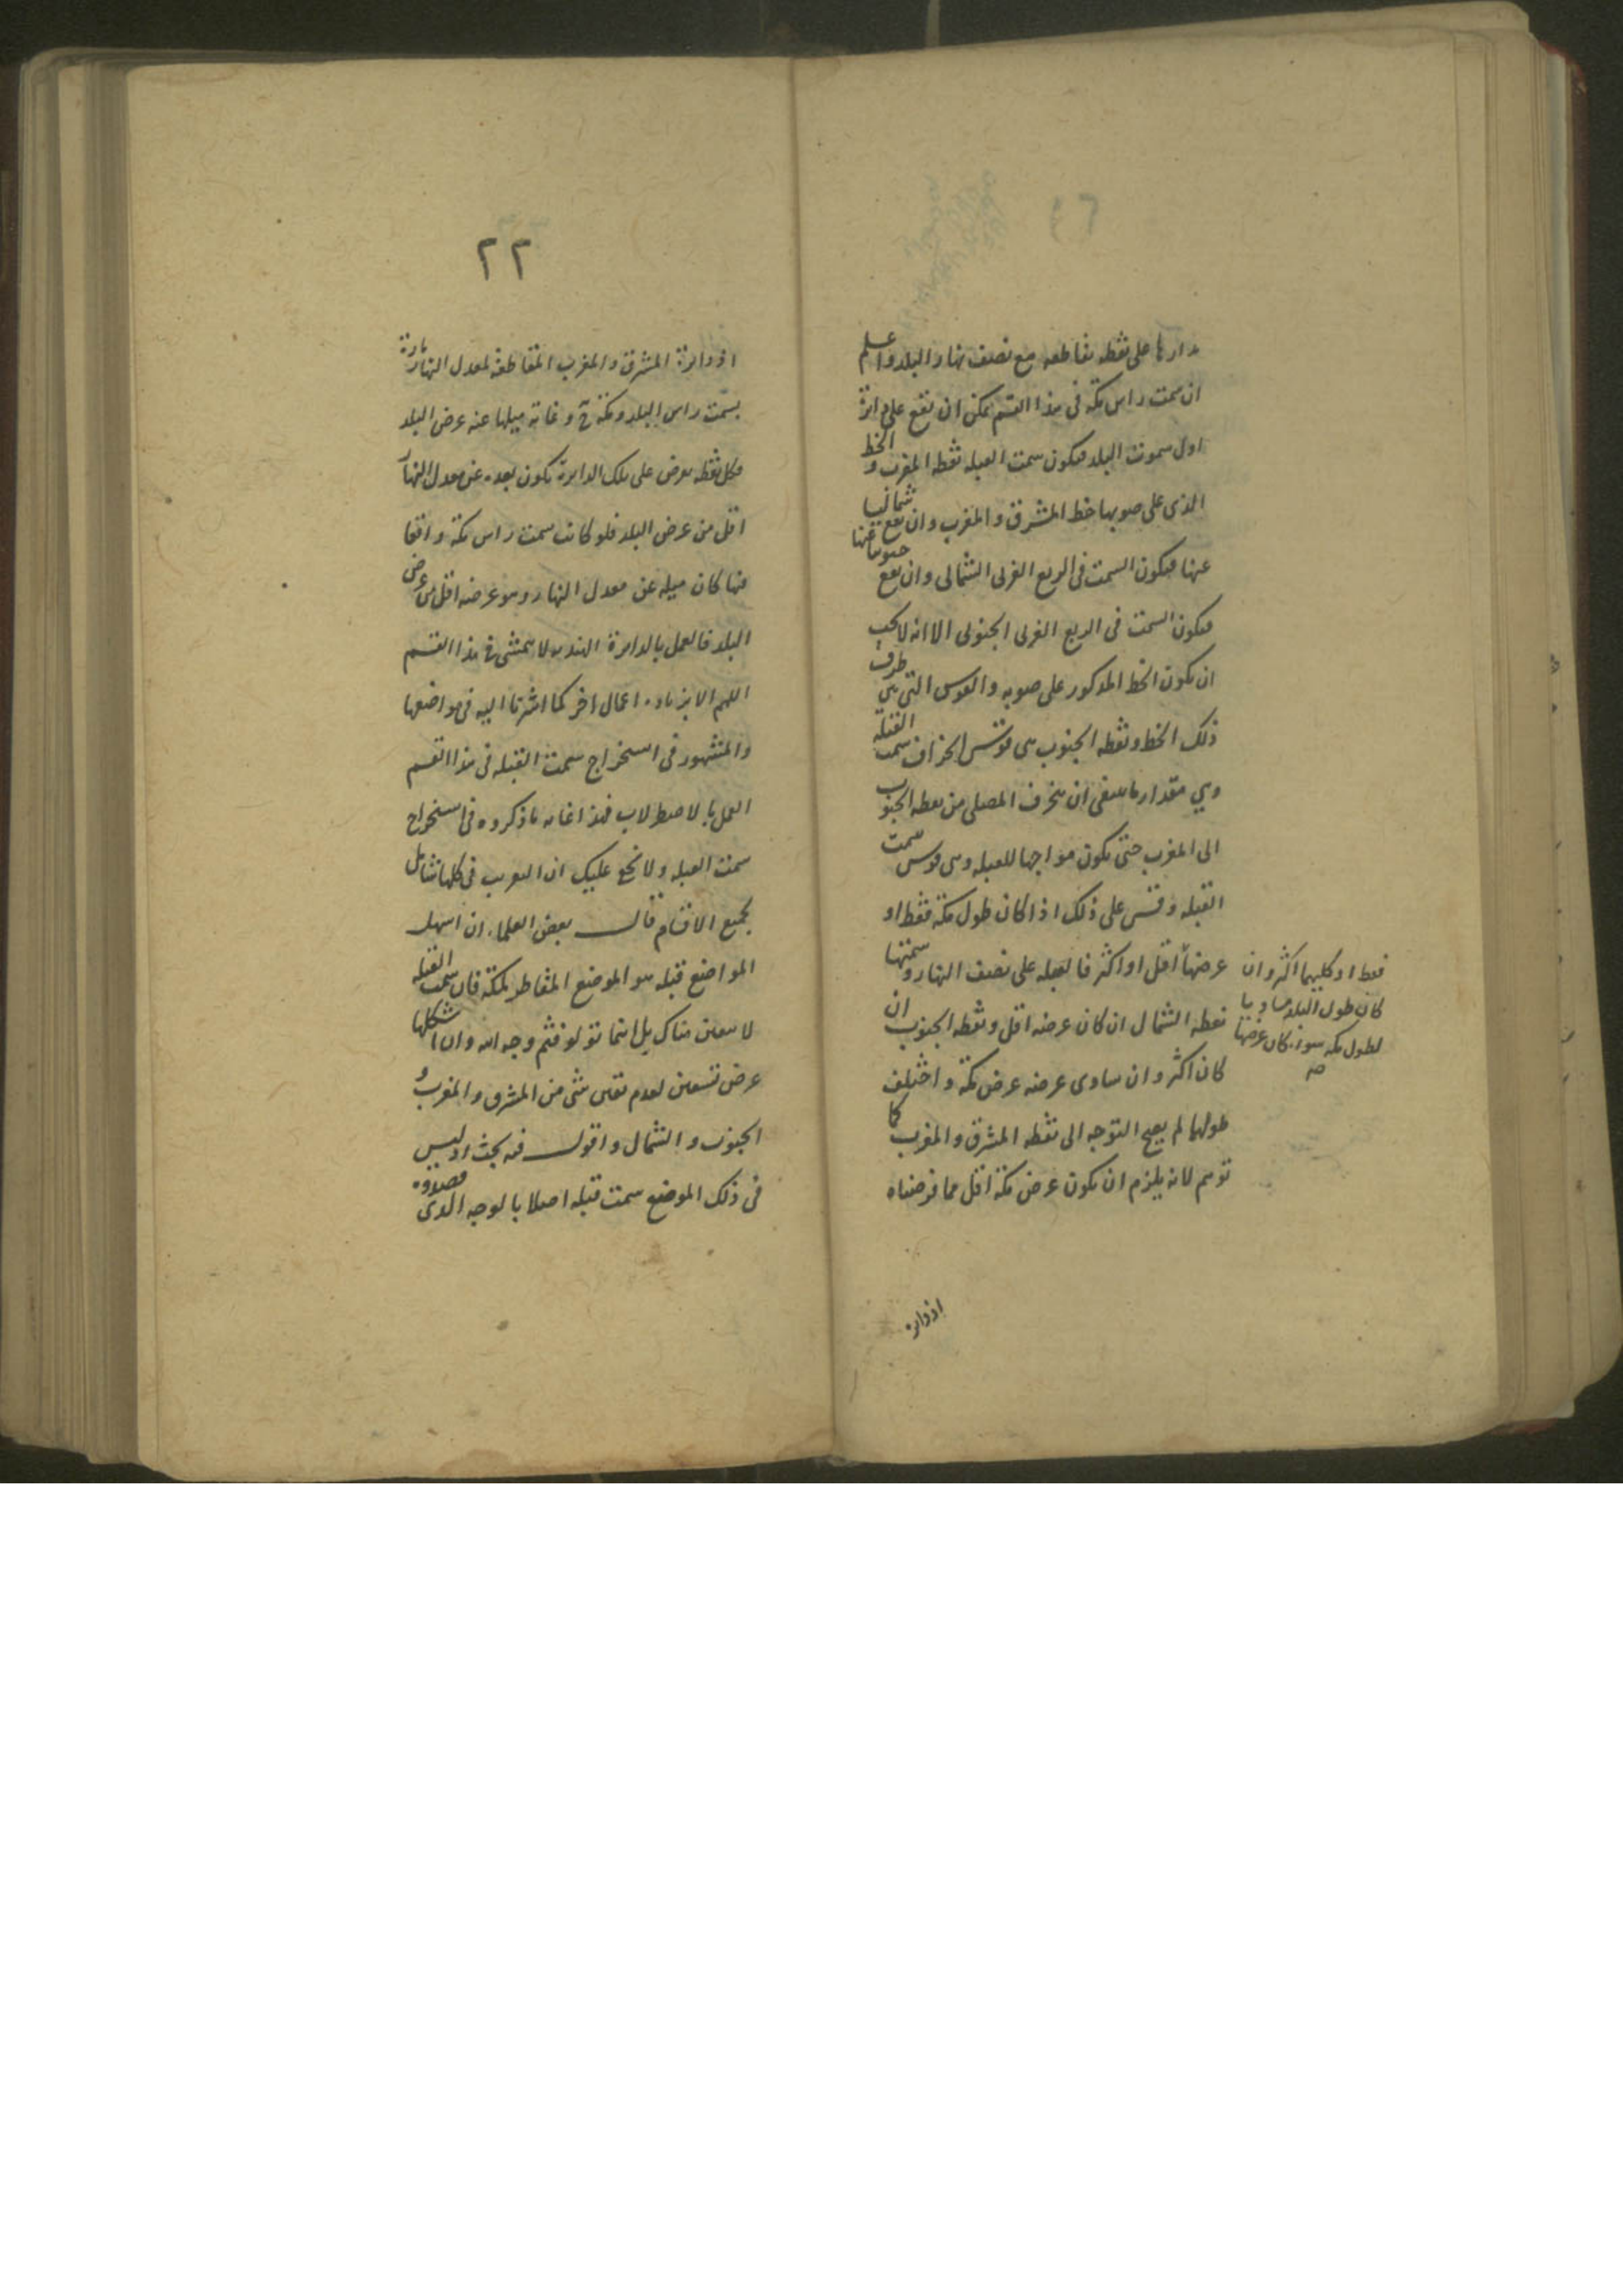 مدارها على نقطه تقاطعه مع نصف نهار البلد واعلم
ان سمت راس مكه فى هذا القسم يمكن ان تقع على دائرة
اول سموت البلد فيكون سمت القبله نقطه المغرب والخط
الذى على صوبها خط المشرق والمغرب وان يقع شماليا
عنها فيكون السمت فى الربع الغربى الشمالى وان يقع جنوبيا عنها
فيكون السمت فى الربع الغربى الجنوبى الا انه لا يجب
ان يكون الخط المذكور على صوبه والقوس التى بين طرف
ذلك الخط ونقطه الجنوب هى قوس انحراف سمت القبلة
وهي مقدار ما ينبغى ان ينحرف المصلى من نقطه الجنوب
الى المغرب حتى يكون مواجها للقبله وهى قوس سمت
القبله وقس على ذلك اذا كان طول مكه فقط او
عرضها اقل او اكثر فالقبله على نصف النهار وسمتها
نقطه الشمال ان كان عرضه اقل ونقطه الجنوب ان
كان اكثر وان ساوى عرضه عرض مكة واختلف
طولهما لم يصح التوجه الى نقطه المشرق والمغرب كما
توهم لانه يلزم ان يكون عرض مكة اقل مما فرضناه
فقط او كليهما اكثر وان
كان طول البلد مساويا
لطول مكه سواء كان عرضها
صه
اذ دايره
٢٢
اذ دايرة المشرق والمغرب المتقاطعة لمعدل النهار مارة
بسمت راس البلد ومكة ح وغاية ميلها عنه عرض البلد
فكل نقطه تفرض على تلك الدايرة يكون بعده عن معدل النهار
اقل من عرض البلد فلو كانت سمت راس مكة واقعا
فيها كان ميله عن معدل النهار وهو عرضه اقل من عرض
البلد فالعمل بالدايرة الهنديه لا يتمشى فى هذا القسم
اللهم الا بزياده اعمال اخر كما اشرنا اليه فى مواضعها
والمشهور فى استخراج سمت القبله فى هذا القسم
العمل بالاصطرلاب فهذا غايه ما ذكروه فى استخراج
سمت القبله ولا يخفى عليك ان التقريب فى كلها شامل
لجميع الاقسام قال بعض العلماء ان اسهل
المواضع قبله هو الموضع المقاطر لمكة فان سمت القبله
لا يتعين هناك بل اينما تولو فثم وجه الله وان اشكلها
عرض تسعين لعدم تعين شى من المشرق والمغرب و
الجنوب والشمال واقول فيه بحث اذ ليس
فى ذلك الموضع سمت قبله اصلا بالوجه الذى قصدوه